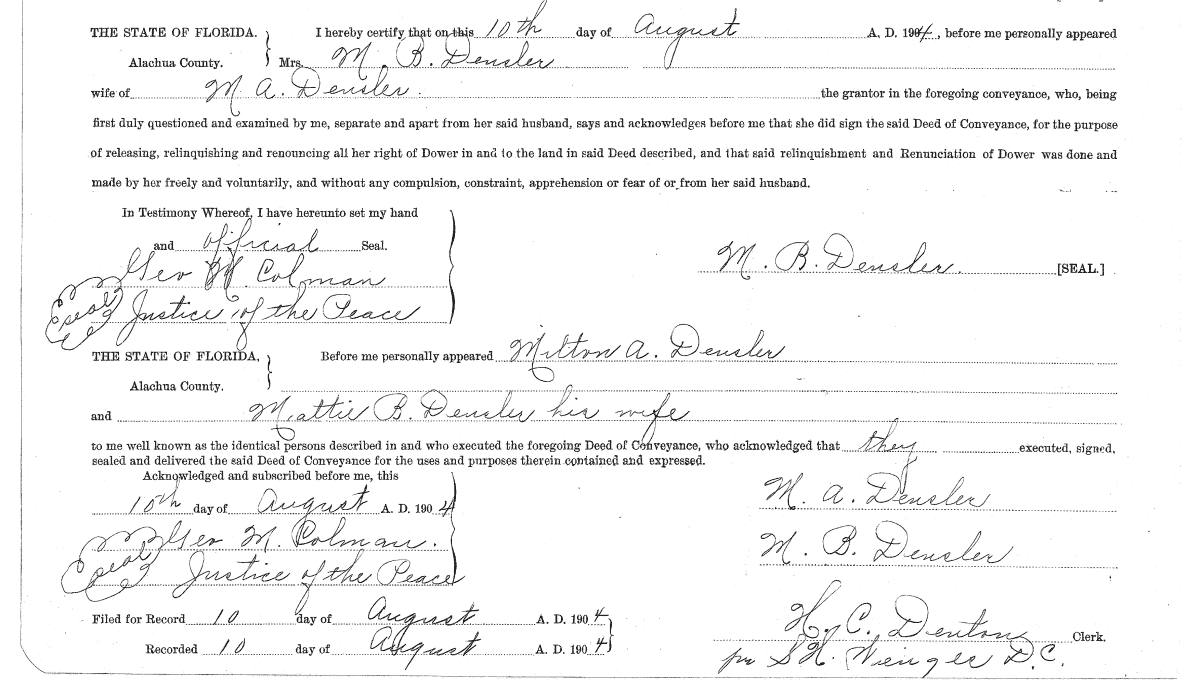 THE STATE OF FLORIDA. I hereby certify that on this 10th day of August A. D. 1904, before me personally appeared
Alachua County. Mrs. M. B. Densler
wife of M A. Densler. the grantor in the foregoing conveyance, who, being
first duly questioned and examined by me, separate and apart from her said husband, says and acknowledges before me that she did sign the said Deed of Conveyance, for the purpose
of releasing, relinquishing and renouncing all her right of Dower in and to the land in said Deed described, and that said relinquishment and Renunciation of Dower was done and
made by her freely and voluntarily, and without any compulsion, constraint, apprehension or fear of or from her said husband.
In Testimony Whereof, I have hereunto set my hand
and official Seal.
M. B. Densler. [SEAL.]
Geo M. Colman
Seal Justice of the Peace
THE STATE OF FLORIDA, Before me personally appeared Milton A. Densler
Alachua County.
and Mattie B. Densler his wife
to me well known as the identical persons described in and who executed the foregoing Deed of Conveyance, who acknowledged that they executed, signed,
sealed and delivered the said Deed of Conveyance for the uses and purposes therein contained and expressed.
Acknowledged and subscribed before me, this
10th day of August A. D. 1904
M. A. Densler
Geo M. Colman.
M. B. Densler
Seal Justice of the Peace
Filed for Record 10 day of August A. D. 1904
H. C. Denton Clerk.
Recorded 10 day of August A. D. 1904
per S. H. Wienges D.C.